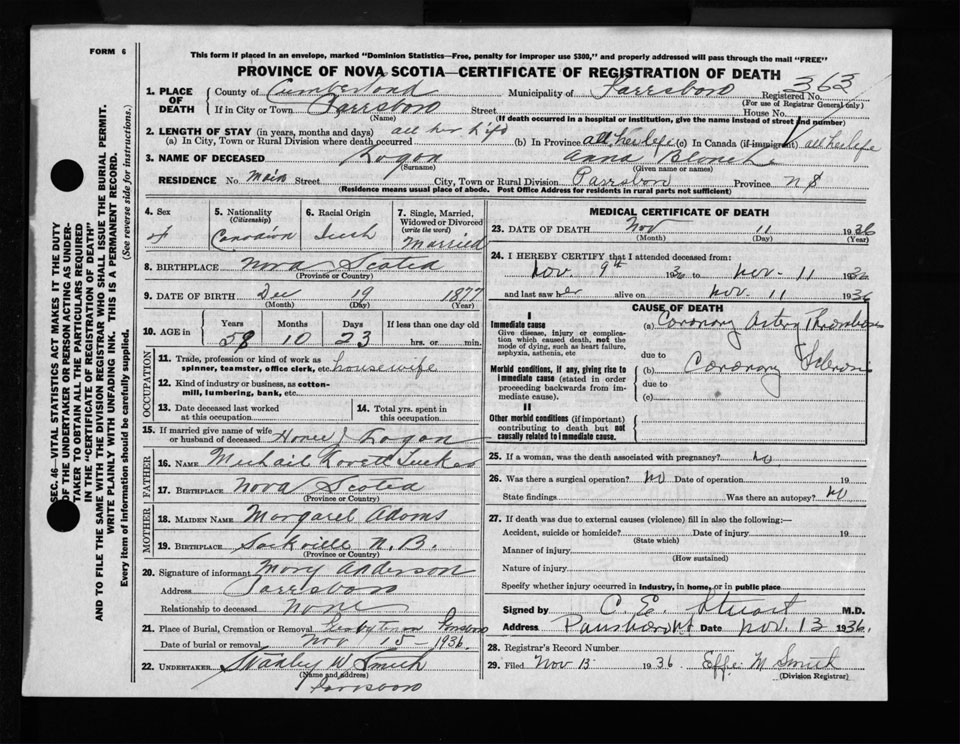 FORM 6
This form if placed in an envelope, marked "Dominion Statistics—Free, penalty for improper use $300," and properly addressed will pass through the mail "FREE"
PROVINCE OF NOVA SCOTIA—CERTIFICATE OF REGISTRATION OF DEATH
1. PLACE OF DEATH County of Cumberland Municipality of Parrsboro Registered No. 363
(For use of Registrar General only)
If in City or Town Parrsboro Street House No.
(Name) (If death occurred in a hospital or institution, give the name instead of street and number)
2. LENGTH OF STAY (in years, months and days) all her life
(a) In City, Town or Rural Division where death occurred (b) In Province all her life (c) In Canada (if immigrant) all her life
3. NAME OF DECEASED Logan Anna Blanche
(Surname) (Given name or names)
RESIDENCE No. Main Street City, Town or Rural Division Parrsboro Province N S
(Residence means usual place of abode. Post Office Address for residents in rural parts not sufficient)
4. Sex f
5. Nationality (Citizenship) Canadian
6. Racial Origin Irish
7. Single, Married, Widowed or Divorced (write the word) Married
8. BIRTHPLACE Nova Scotia
(Province or Country)
9. DATE OF BIRTH Dec 19 1877
(Month) (Day) (Year)
10. AGE in Years 58 Months 10 Days 23 If less than one day old hrs. or min.
OCCUPATION
11. Trade, profession or kind of work as spinner, teamster, office clerk, etc. housewife
12. Kind of industry or business, as cotton-mill, lumbering, bank, etc.
13. Date deceased last worked at this occupation
14. Total yrs. spent in this occupation
15. If married give name of wife or husband of deceased J Logan
FATHER
16. Name Michail
17. Birthplace Nova Scotia
(Province or Country)
MOTHER
18. Maiden Name Margaret Adams
19. Birthplace Sackville N.B.
(Province or Country)
20. Signature of informant Mary Anderson
Address Parrsboro
Relationship to deceased None
21. Place of Burial, Cremation or Removal Presbyterian Parrsboro
Date of burial or removal Nov 15 - 1936
22. UNDERTAKER Stanley W Smith
(Name and address)
Parrsboro
MEDICAL CERTIFICATE OF DEATH
23. DATE OF DEATH Nov 11 1936
(Month) (Day) (Year)
24. I HEREBY CERTIFY that I attended deceased from:
Nov. 9th 1936 to Nov. 11 1936
and last saw her alive on Nov. 11 1936
CAUSE OF DEATH
I
Immediate cause
Give disease, injury or complication which caused death, not the mode of dying, such as heart failure, asphyxia, asthenia, etc
(a) Coronary Artery Thrombosis
due to
Morbid conditions, if any, giving rise to immediate cause (stated in order proceeding backwards from immediate cause).
(b) Coronary Sclerosis
due to
(c)
II
Other morbid conditions (if important) contributing to death but not causally related to immediate cause.
25. If a woman, was the death associated with pregnancy? No
26. Was there a surgical operation? No Date of operation 19
State findings Was there an autopsy? No
27. If death was due to external causes (violence) fill in also the following:—
Accident, suicide or homicide? Date of injury 19
(State which)
Manner of injury
(How sustained)
Nature of injury
Specify whether injury occurred in Industry, in home, or in public place
Signed by C. E. Stuart M.D.
Address Date Nov. 13 1936.
28. Registrar's Record Number
29. Filed Nov 13 1936 Effie M Smith
(Division Registrar)
SEC. 46—VITAL STATISTICS ACT MAKES IT THE DUTY
OF THE UNDERTAKER OR PERSON ACTING AS UNDER-
TAKER TO OBTAIN ALL THE PARTICULARS REQUIRED
IN THE "CERTIFICATE OF REGISTRATION OF DEATH"
AND TO FILE THE SAME WITH THE DIVISION REGISTRAR WHO SHALL ISSUE THE BURIAL PERMIT.
WRITE PLAINLY WITH UNFADING INK. THIS IS A PERMANENT RECORD.
Every item of information should be carefully supplied. (See reverse side for instructions.)